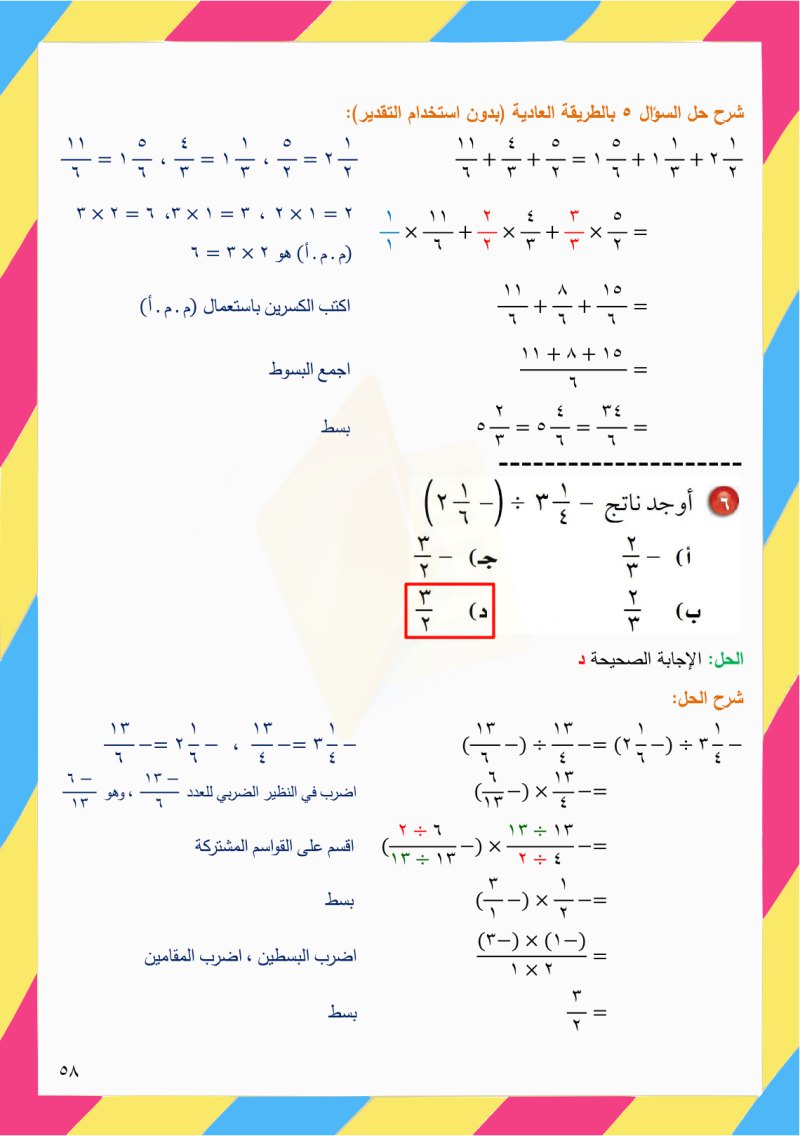 شرح حل السؤال ٥ بالطريقة العادية (بدون استخدام التقدير):
٢ ١/٢ + ١ ١/٣ + ١ ٥/٦ = ٥/٢ + ٤/٣ + ١١/٦
٢ ١/٢ = ٥/٢ ، ١ ١/٣ = ٤/٣ ، ١ ٥/٦ = ١١/٦
= ٥/٢ × ٣/٣ + ٤/٣ × ٢/٢ + ١١/٦ × ١/١
٢ = ١ × ٢ ، ٣ = ١ × ٣، ٦ = ٢ × ٣
(م.م.أ) هو ٢ × ٣ = ٦
= ١٥/٦ + ٨/٦ + ١١/٦
اكتب الكسرين باستعمال (م.م.أ)
= (١٥ + ٨ + ١١)/٦
اجمع البسوط
= ٣٤/٦ = ٥ ٤/٦ = ٥ ٢/٣
بسط
٦ أوجد ناتج − ٣ ١/٤ ÷ (− ٢ ١/٦)
أ) − ٢/٣ جـ) − ٣/٢
ب) ٢/٣ د) ٣/٢
الحل: الإجابة الصحيحة د
شرح الحل:
−٣ ١/٤ ÷ (−٢ ١/٦) =− ١٣/٤ ÷ (− ١٣/٦)
−٣ ١/٤ =− ١٣/٤ ، −٢ ١/٦ =− ١٣/٦
=− ١٣/٤ × (− ٦/١٣)
اضرب في النظير الضربي للعدد −١٣/٦ ، وهو −٦/١٣
=− (١٣ ÷ ١٣)/(٤ ÷ ٢) × (− (٦ ÷ ٢)/(١٣ ÷ ١٣))
اقسم على القواسم المشتركة
=− ١/٢ × (− ٣/١)
بسط
= (−١) × (−٣)/(٢ × ١)
اضرب البسطين ، اضرب المقامين
= ٣/٢
بسط
٥٨